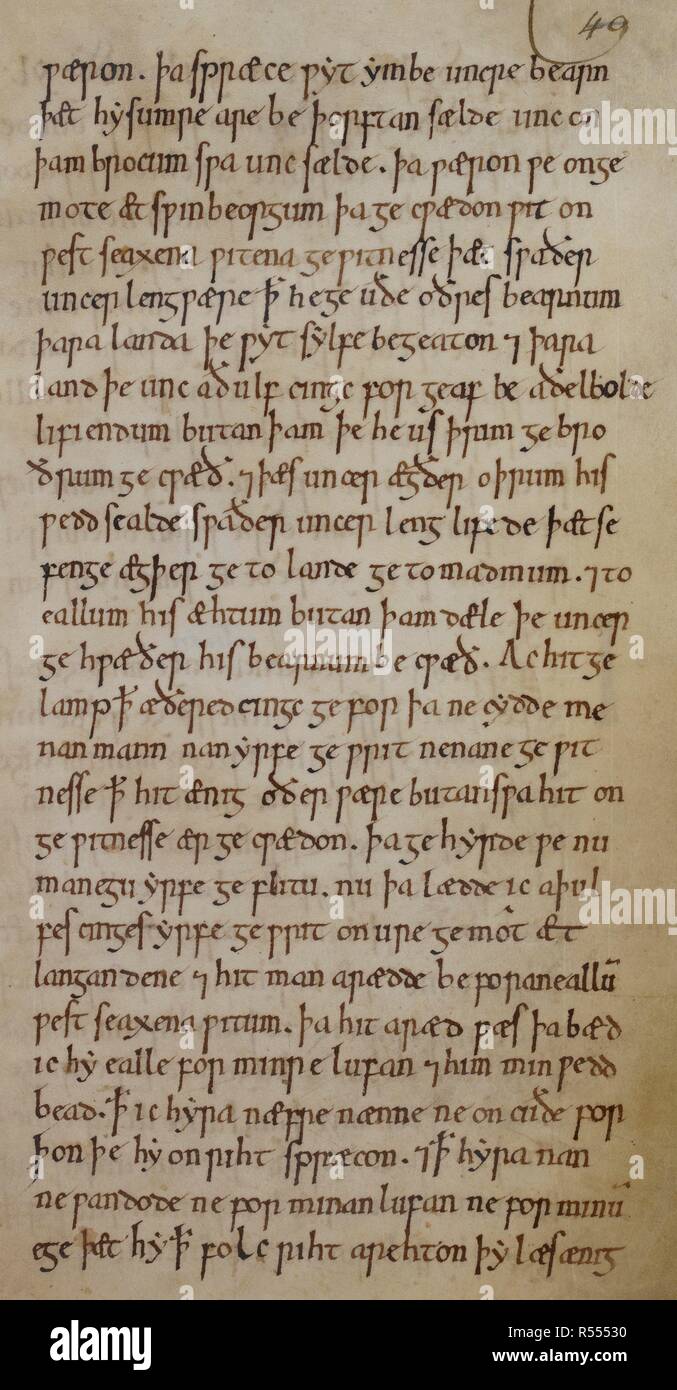 49
ƿæron. þa spræce ƿẏt ẏmbe uncre bearn
þæt hẏ sumre are be þorftan sælde unc on
þam brocum sƿa unc sælde. þa ƿæron ƿe on ge
mote æt sƿinbeorgum þa ge cƿædon ƿit on
ƿest seaxena ƿitena ge ƿitnesse þæt sƿaðer
uncer leng ƿære ꝥ he ge uðe oðres bearnum
þara landa þe ƿẏt sẏlfe begeaton ⁊ þara
land þe unc aðulf cingc forgeaf be aðelbolde
lifiendum butan þam þe he us þrim ge bro
ðrum ge cƿæð. ⁊ þæs uncer ægðer oþrum his
ƿedd sealde sƿaðer uncer leng lifede þæt se
fenge ægþer ge to lande ge to madmum. ⁊ to
eallum his æhtum butan þam dæle þe uncer
ge hƿæðer his bearnum be cƿæð. Ac hit ge
lamp ꝥ æðered cingc ge for þa ne cẏdde me
nan mann nan ẏrfe ge ƿrit ne nane ge ƿit
nesse ꝥ hit ænig oðer ƿære butan sƿa hit on
ge ƿitnesse ær ge cƿædon. þa ge hẏrde ƿe nu
manegu ẏrfe ge flitu. nu þa lædde ic aþul
fes cinges ẏrfe ge ƿrit on ure ge mot æt
langandene ⁊ hit man arædde be foran eallū
ƿest seaxena ƿitum. þa hit aræd ƿæs þa bæd
ic hẏ ealle for minre lufan ⁊ him min ƿedd
bead. ꝥ ic hẏra næfre nænne ne on cuðe for
þon þe hẏ on riht spræcon. ⁊ ꝥ hẏra nan
ne ƿandode ne for minan lufan ne for minū
ege þæt hẏ ꝥ folc riht arehton þẏ læs ænig
alamy
Image ID: R55530
www.alamy.com